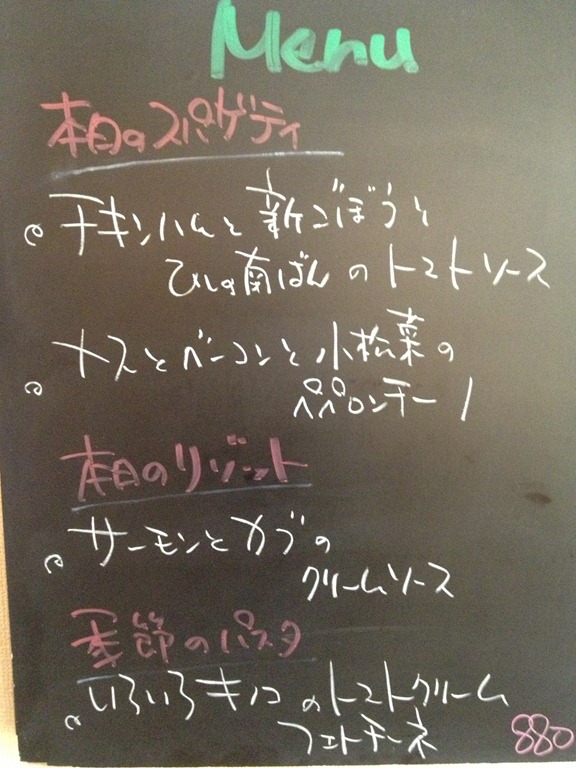 Menu
本日のスパゲティ
チキンハムと新ごぼうと
ひしの南ばんのトマトソース
ナスとベーコンと小松菜の
ペペロンチーノ
本日のリゾット
サーモンとカブの
クリームソース
季節のパスタ
いろいろキノコのトマトクリーム
フェトチーネ
880